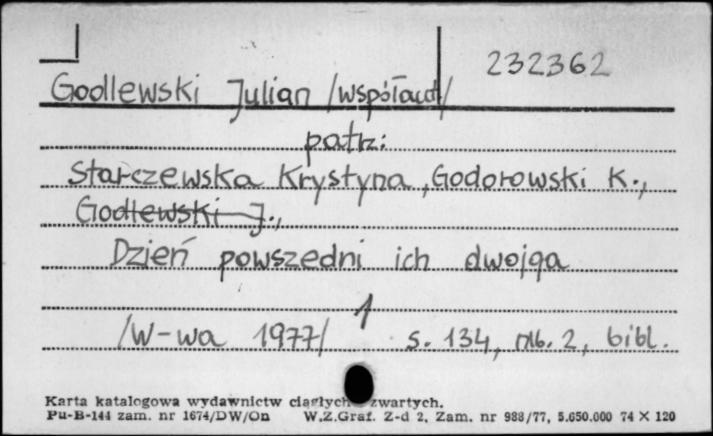 232362
Godlewski Julian /współaut/
patrz:
Starczewska Krystyna, Godorowski K.,
Godlewski J.,
Dzień powszedni ich dwojga
1
/W-wa 1977/ s. 134, nlb. 2, bibl.
Karta katalogowa wydawnictw ciągłych zwartych.
Pu-B-144 zam. nr 1674/DW/On W.Z.Graf. Z-d 2, Zam. nr 988/77, 5.650.000 74 × 120